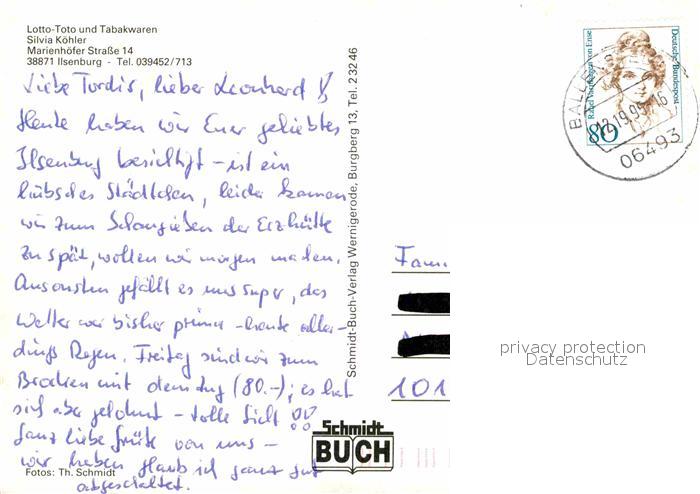 Lotto-Toto und Tabakwaren
Silvia Köhler
Marienhöfer Straße 14
38871 Ilsenburg - Tel. 039452/713
Liebe Tordis, lieber Leonhard!
Heute haben wir Euer geliebtes
Ilsenburg besichtigt - ist ein
hübsches Städtchen, leider kamen
wir zum Schaugießen der Erzhütte
zu spät, wollen wir morgen machen.
Ansonsten gefällt es uns super, das
Wetter war bisher prima - heute aller-
dings Regen. Freitag sind wir zum
Brocken mit dem Zug (80.-), es hat
sich aber gelohnt - tolle Sicht!!
Ganz liebe Grüße von uns -
wir haben glaub ich ganz gut
abgeschaltet.
Fotos: Th. Schmidt
Schmidt-Buch-Verlag Wernigerode, Burgberg 13, Tel. 23246
Schmidt
BUCH
Deutsche Bundespost
Rahel Varnhagen von Ense
80
BALLE
06493
Fam
101
privacy protection
Datenschutz